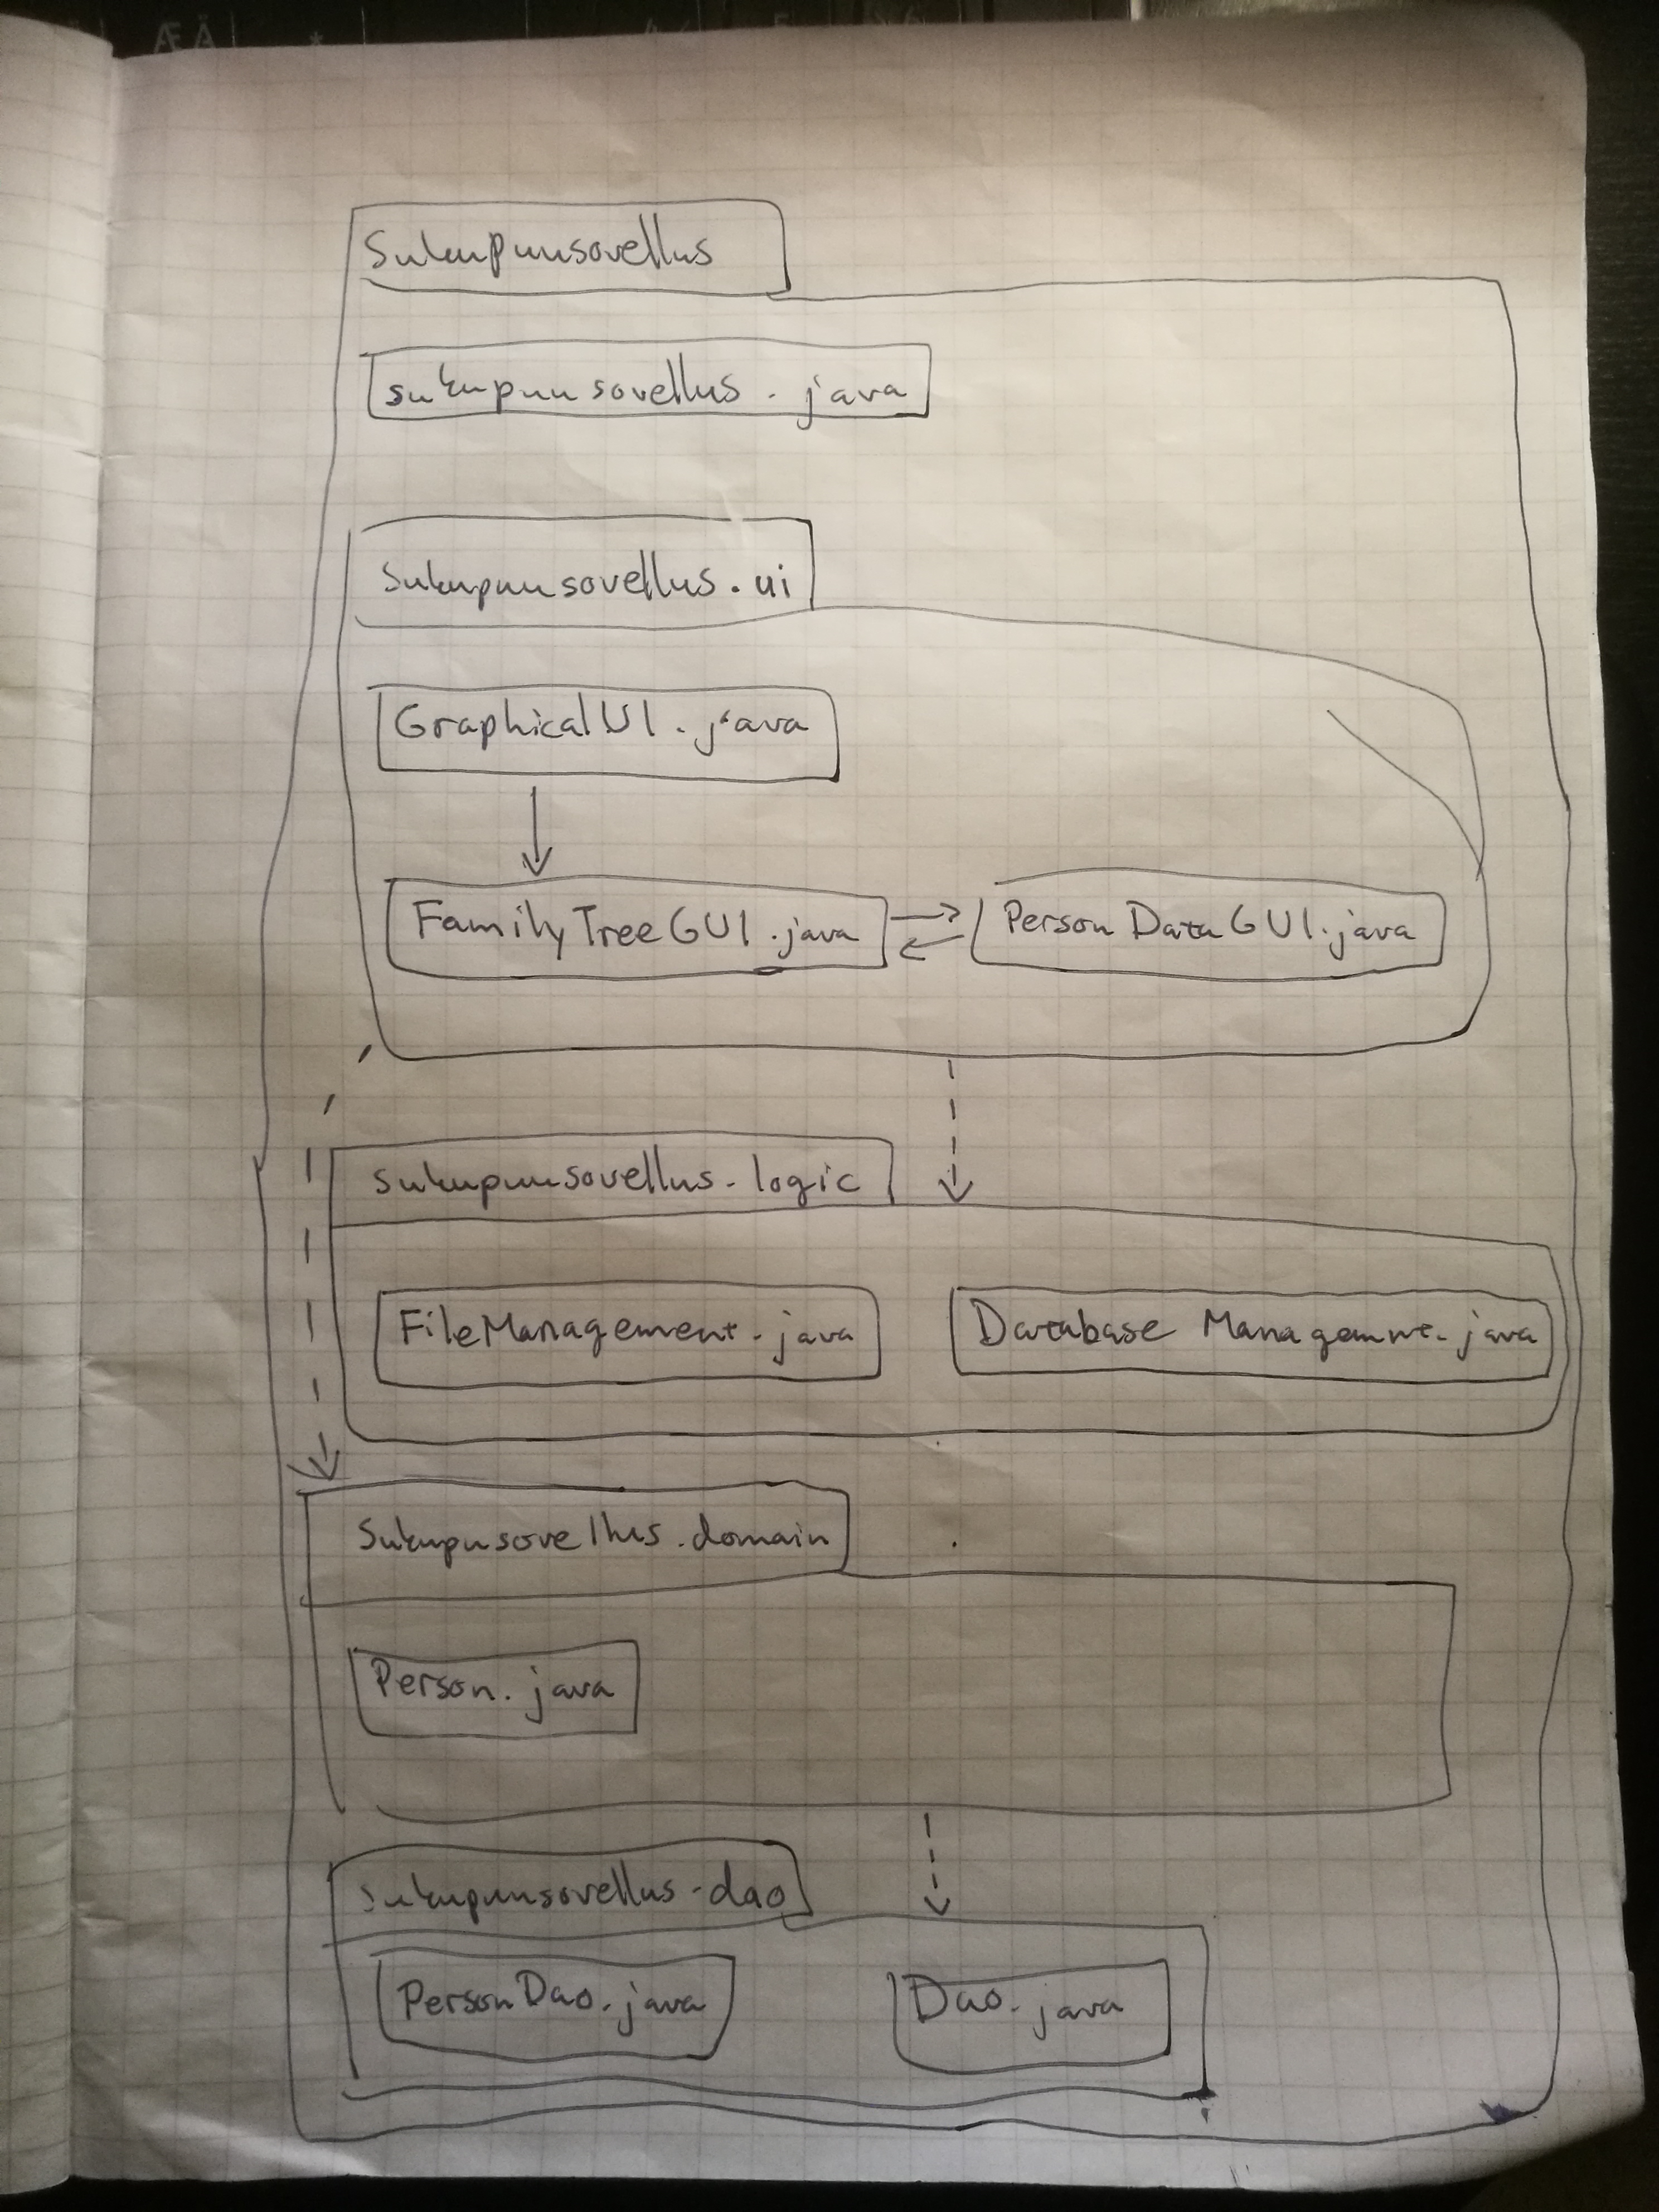 Sukupuusovellus
sukupuusovellus.java
Sukupuusovellus.ui
GraphicalUI.java
FamilyTreeGUI.java
PersonDataGUI.java
sukupuusovellus.logic
FileManagement.java
Database Managemnt.java
Sukupusovellus.domain
Person.java
sukupuusovellus.dao
PersonDao.java
Dao.java